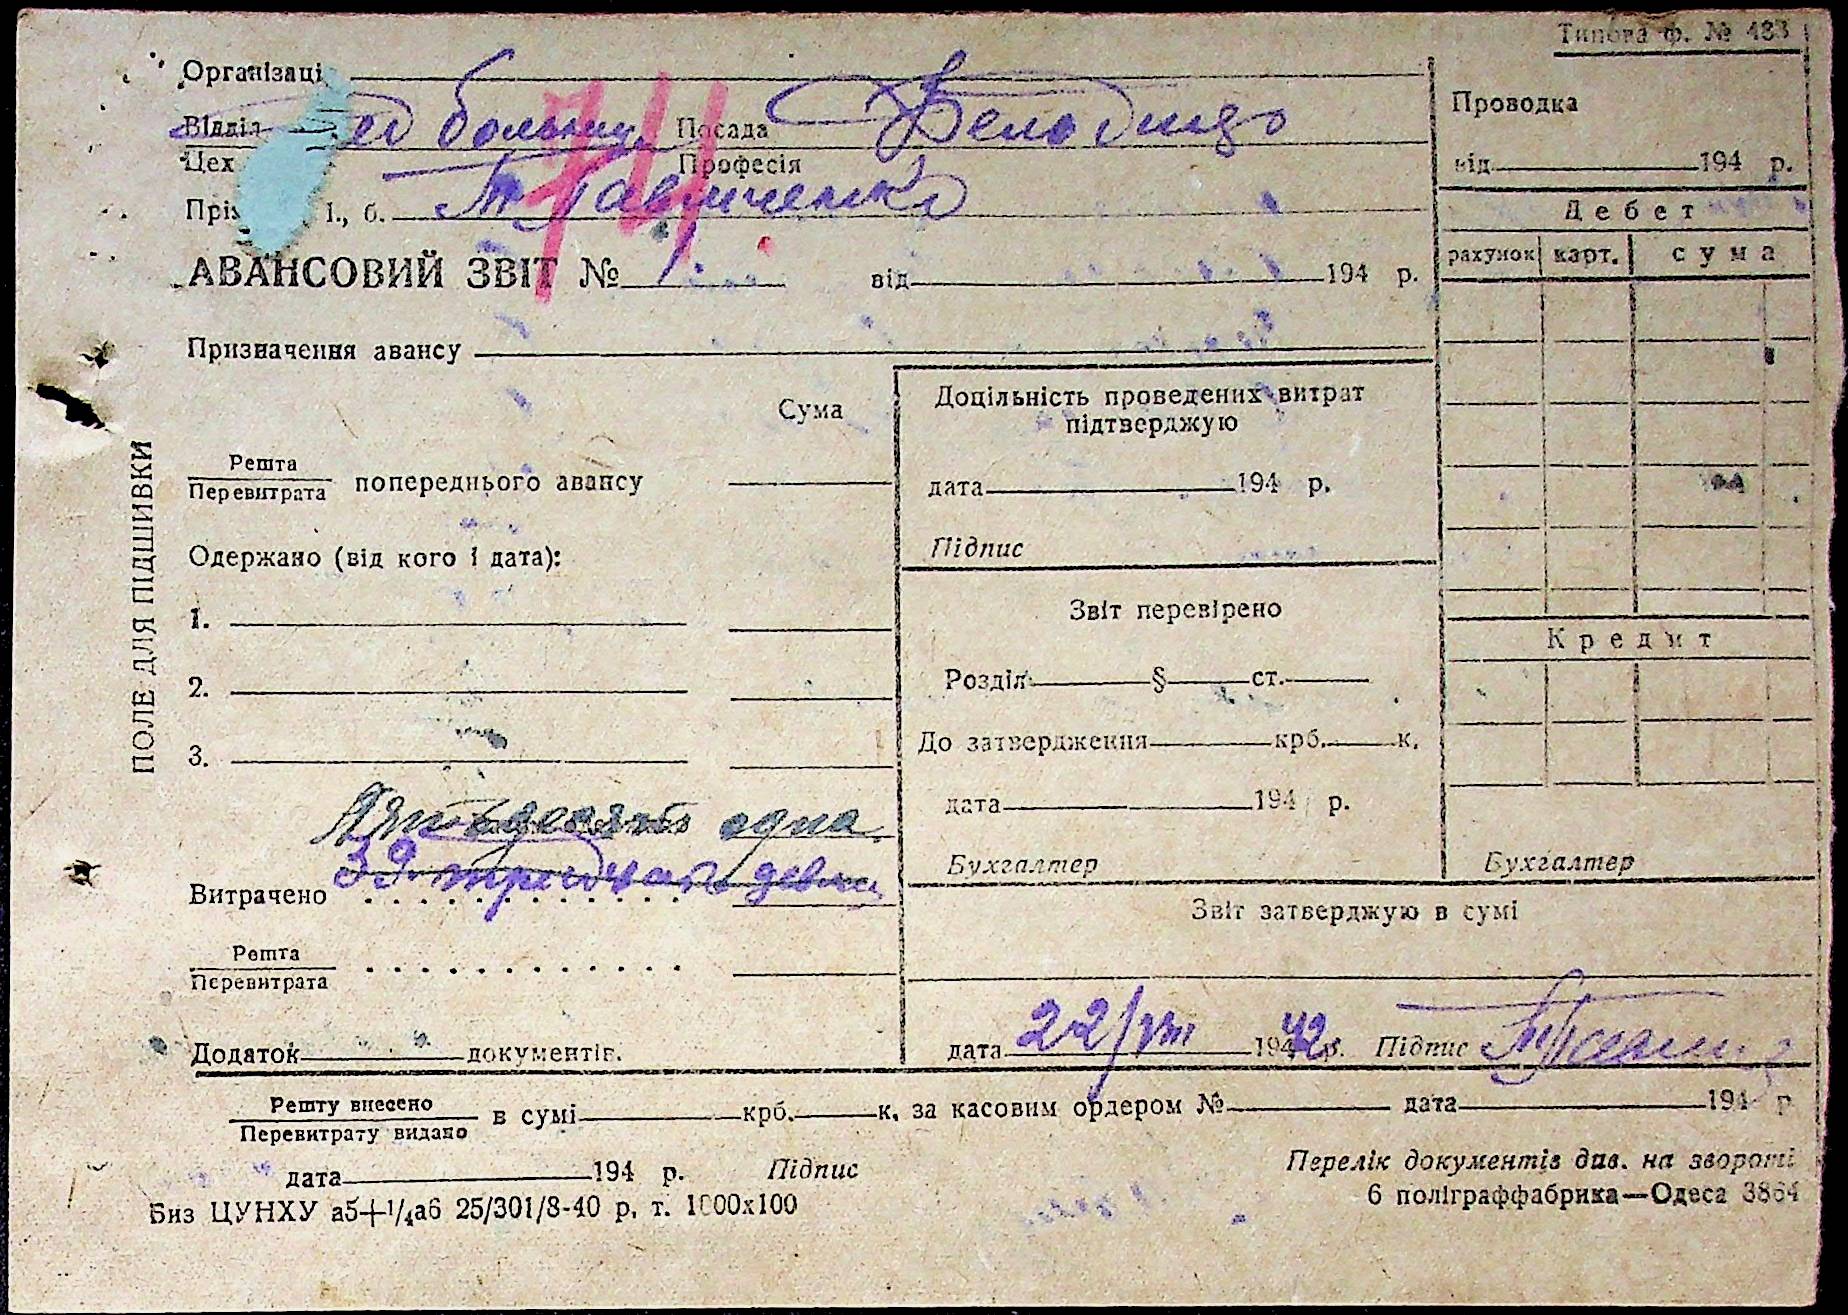 Типова ф. № 433
Організаці
Відділ больниц Посада
Цех Професія
Прі І., б.
711
АВАНСОВИЙ ЗВІТ № від 194 р.
Призначення авансу
Проводка
від 194 р.
Дебет
рахунок карт. сума
Сума
Решта
Перевитрата попереднього авансу
Одержано (від кого і дата):
1.
2.
3.
Пятьдесять одна
39 тридцать девять
Витрачено
Решта
Перевитрата
Додаток документів.
Доцільність проведених витрат
підтверджую
дата 194 р.
Підпис
Звіт перевірено
Розділ § ст.
До затвердження крб. к.
дата 194 р.
Бухгалтер
Кредит
Бухгалтер
Звіт затверджую в сумі
дата 22/VIII 1942 р. Підпис
Решту внесено
Перевитрату видано в сумі крб. к. за касовим ордером № дата 194 р
дата 194 р. Підпис
Перелік документів див. на звороті
Биз ЦУНХУ аб+1/4аб 25/301/8-40 р. т. 1000х100
6 поліграффабрика—Одеса 3864
ПОЛЕ ДЛЯ ПІДШИВКИ